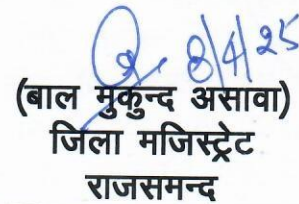 8/4/25
(बाल मुकुन्द असावा)
जिला मजिस्ट्रेट
राजसमन्द